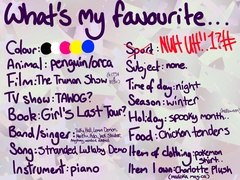 What's my favourite...
Colour:
Animal: penguin/orca
Film: The Truman Show
TV show: TAWOG?
Book: Girl's Last Tour?
Band/singer:
Song: Stranded Lullaby Demo
Instrument: piano
Sport: NUH UH!!
Subject: none.
Time of day: night
Season: winter
Holiday: spooky month..
Food: Chicken tenders
Item of clothing: pokemon shirt..
Item I own: Charlotte Plush